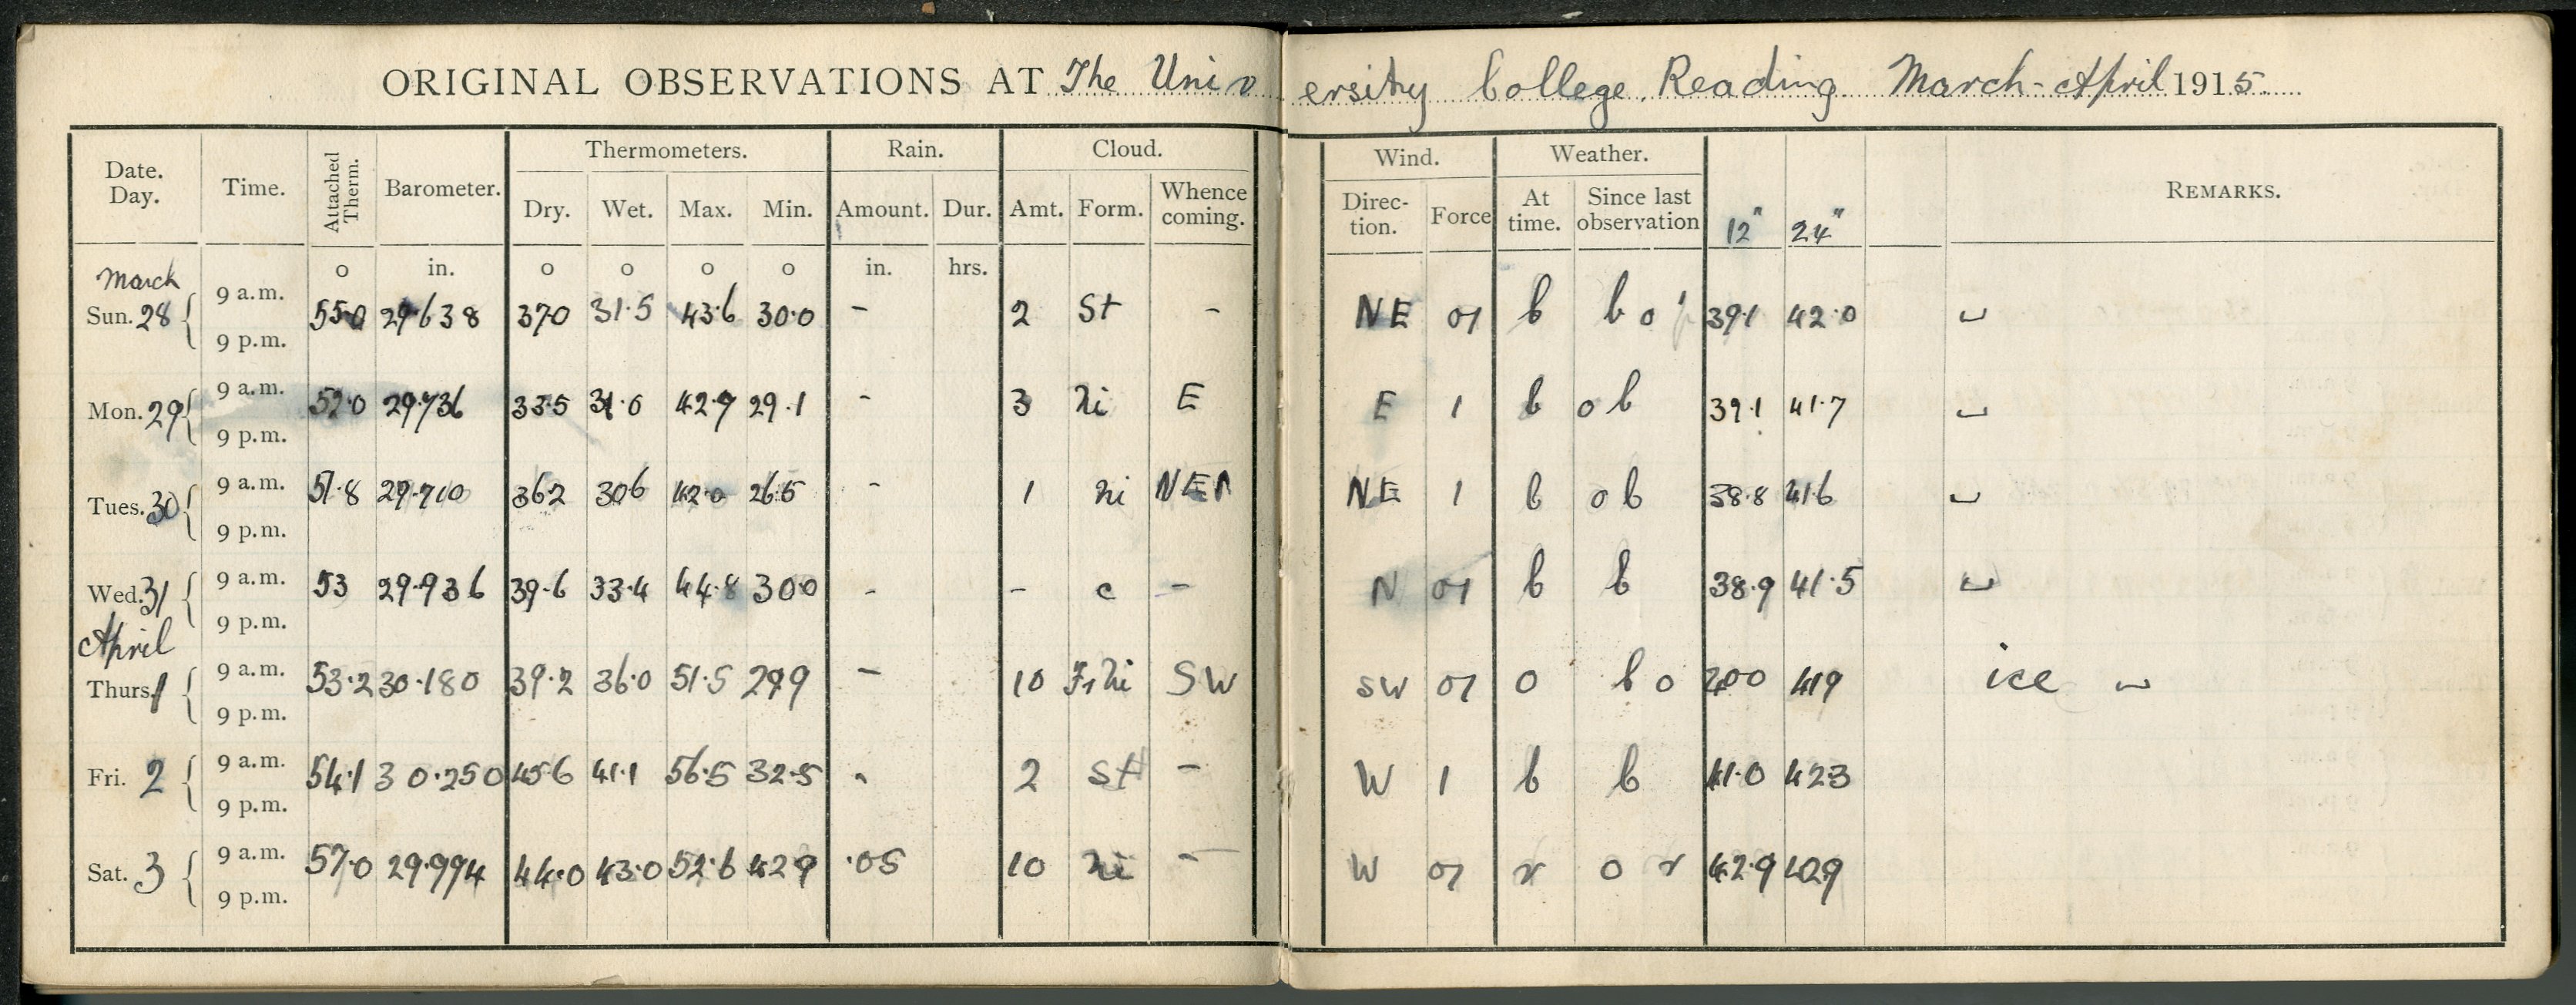 ORIGINAL OBSERVATIONS AT The University College, Reading March-April 1915
Date. Day. Time. Attached Therm. Barometer. Thermometers. Rain. Cloud. Wind. Weather. REMARKS.
Dry. Wet. Max. Min. Amount. Dur. Amt. Form. Whence coming. Direc-tion. Force At time. Since last observation 12" 24"
March o in. o o o o in. hrs.
Sun. 28 9 a.m. 55.0 29.638 37.0 31.5 43.6 30.0 - 2 St - NE 01 b b o 39.1 42.0 ⌴
9 p.m.
Mon. 29 9 a.m. 52.0 29.736 33.5 31.0 42.7 29.1 - 3 Ni E E 1 b o b 39.1 41.7 ⌴
9 p.m.
Tues. 30 9 a.m. 51.8 29.710 36.2 30.6 42.0 26.5 - 1 Ni NE NE 1 b o b 38.8 41.6 ⌴
9 p.m.
Wed. 31 9 a.m. 53 29.936 39.6 33.4 44.8 30.0 - - c - N 01 b b 38.9 41.5 ⌴
9 p.m.
April
Thurs. 1 9 a.m. 53.2 30.180 39.2 36.0 51.5 29.9 - 10 Fr Ni SW SW 01 o b o 40.0 41.9 ice ⌴
9 p.m.
Fri. 2 9 a.m. 54.1 30.250 45.6 41.1 56.5 32.5 - 2 St - W 1 b b 41.0 42.3
9 p.m.
Sat. 3 9 a.m. 57.0 29.994 44.0 43.0 52.6 42.9 .05 10 Ni - W 01 r o r 42.9
9 p.m.